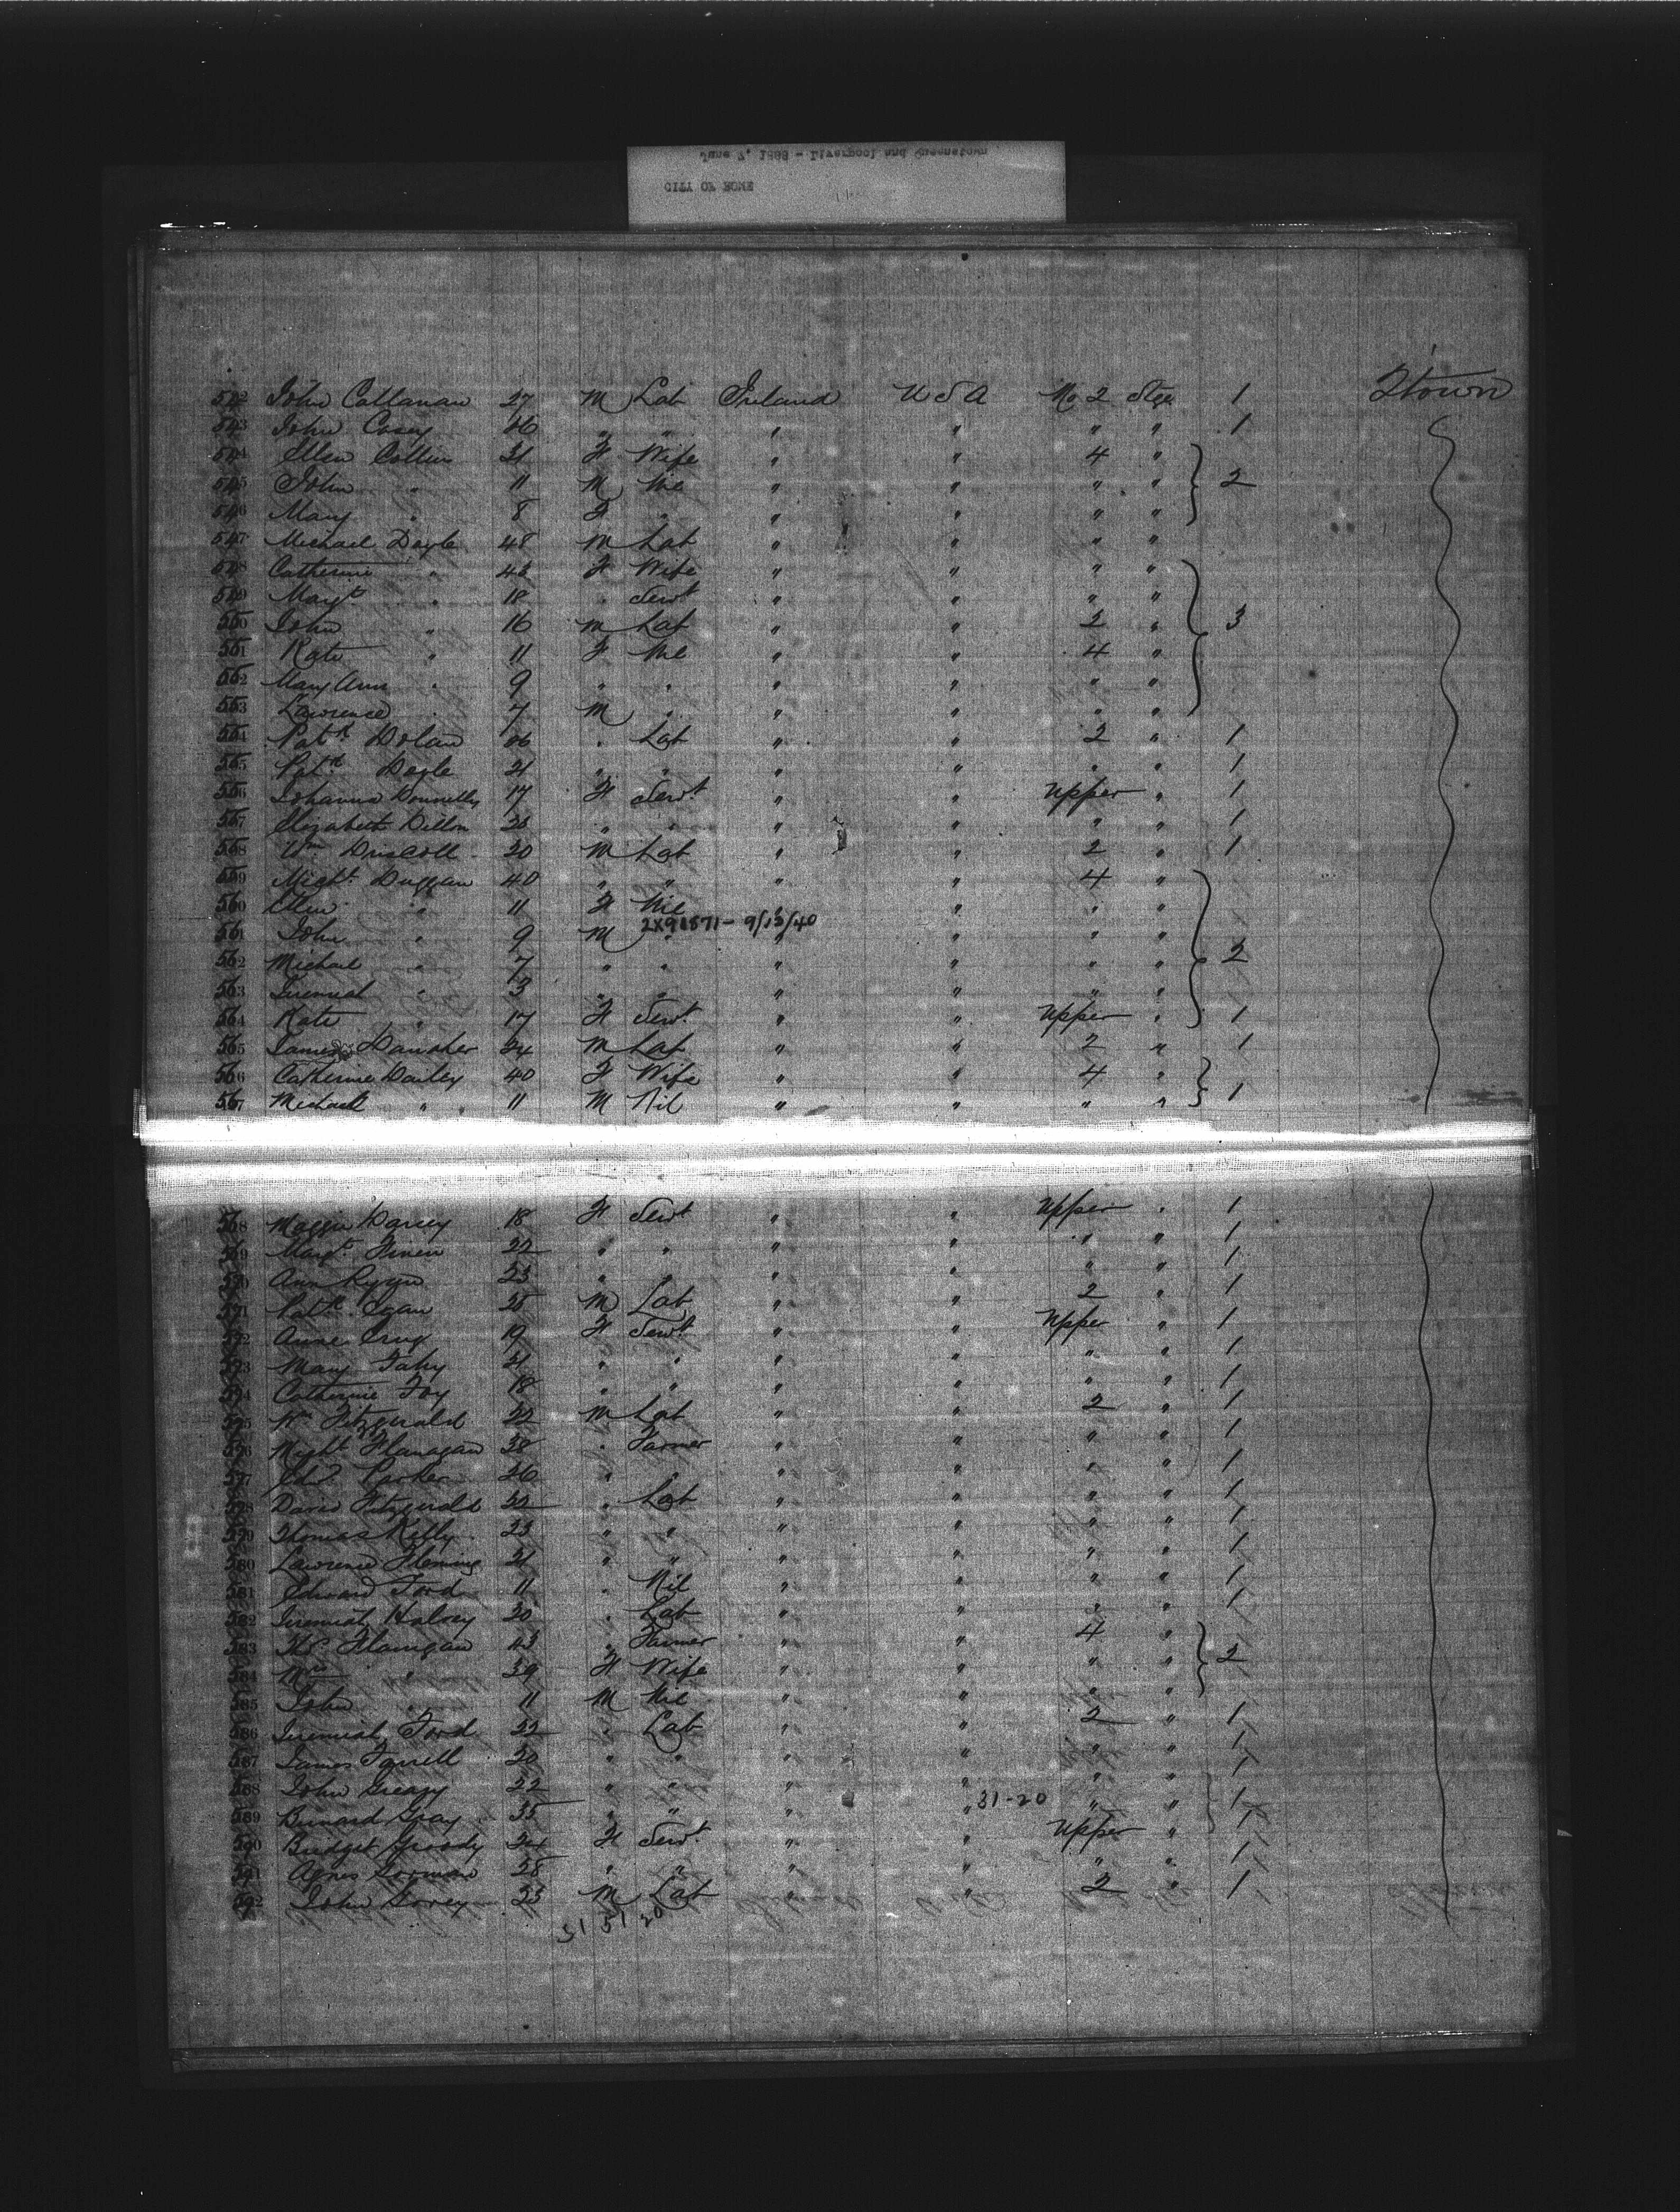 June 7, 1888 - Liverpool and Queenstown
CITY OF ROME
542 John Callanan 27 M Lab Ireland U S A No 2 Stge 1 Qtown
543 John Casey 26 " " " " " " 1
544 Ellen Collins 31 F Wife " " 4 "
545 John " 11 M Nil " " " " 2
546 Mary " 8 F " " " " "
547 Michael Doyle 48 M Lab " " " "
548 Catherine " 43 F Wife " " " "
549 Margt " 18 " Servt " " " "
550 John " 16 M Lab " " 2 " 3
551 Kate " 11 F Nil " " 4 "
552 Mary Ann " 9 " " " " " "
553 Lawrence " 7 M " " " " "
554 Patk Dolan 26 " Lab " " 2 " 1
555 Patk Doyle 21 " " " " " " 1
556 Johanna Donnelly 17 F Servt " " Upper " 1
557 Elizabeth Dillon 23 " " " " " " 1
558 Wm Driscoll 20 M Lab " " 2 " 1
559 Michl Duggan 40 " " " " 4 "
560 Ellen " 11 F Nil " " " "
2X98571- 9/13/40
561 John " 9 M " " " " "
562 Michael " 7 " " " " " " 2
563 Jeremiah " 3 " " " " " "
564 Kate " 17 F Servt " " Upper " 1
565 James Danaher 24 M Lab " " 2 " 1
566 Catherine Dailey 40 F Wife " " 4 "
567 Michael " 11 M Nil " " " " 1
568 Maggie Darcey 18 F Servt " " Upper " 1
569 Margt 22 " " " " " " 1
570 Ann 23 " " " " " " 1
571 Patk Egan 25 M Lab " " 2 " 1
572 Anne 19 F Servt " " Upper " 1
573 Mary Fahy 21 " " " " " " 1
574 Catherine Foy 18 " " " " " " 1
575 Wm Fitzgerald 22 M Lab " " 2 " 1
576 Michl Flanagan 38 " Farmer " " " " 1
577 Edwd Parker 26 " " " " " " 1
578 David Fitzgerald 22 " Lab " " " " 1
579 Thomas Kelly 23 " " " " " " 1
580 Lawrence Fleming 21 " " " " " " 1
581 Edward Ford 11 " Nil " " " " 1
582 Jeremiah Halvey 20 " Lab " " " " 1
583 Flanigan 43 " Farmer " " 4 "
584 Mrs " 39 F Wife " " " " 2
585 John " 11 M Nil " " " "
586 Jeremiah Ford 22 " Lab " " 2 " 1
587 James Farrell 20 " " " " " " 1
588 John Greany 22 " " " " " " 1
589 Bernard Gray 35 " " " " 31-20 " " 1
590 Bridget Groody 24 F Servt " " Upper " 1
591 Agnes Gorman 28 " " " " " " 1
592 John Gorey 23 M Lab " " 2 " 1
51 51 20